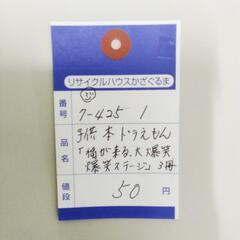 リサイクルハウスかざぐるま
番号 7-425 1
品名 子供本ドラえもん
「福が来る、大爆笑
爆笑ステージ」3冊
値段 50円